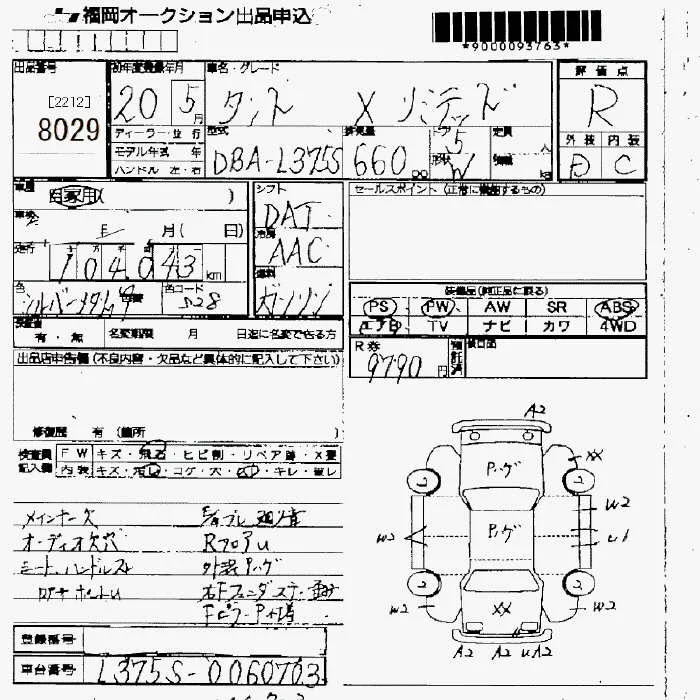 福岡オークション出品申込
*9000093763*
出品番号
[2212]
8029
初年度登録年月
20 5月
車名・グレード
タント X リミテッド
評価点
R
外装 内装
D C
ディーラー・並行
モデル年式 年
ハンドル 左・右
型式
DBA-L375S
排気量
660 cc
ドア
5
形状
W
定員
人
積載
kg
車歴
自家用( )
車検
年 月( 日)
走行
104043 km
色
シルバー
色コード
S28
シフト
DAT
冷房
AAC
燃料
ガソリン
セールスポイント (正常に機能するもの)
装備品(純正品に限る)
PS PW AW SR ABS
エアB TV ナビ カワ 4WD
有・無 名変期限 月 日迄に名変できる方
R券
9790円
預託済
出品店申告欄 (不良内容・欠品など具体的に記入して下さい)
修復歴 有 (箇所 )
検査員記入欄
FW キズ・飛石・ヒビ割・リペア跡・X要
内装 キズ・汚レ・コゲ・穴・キレ・スレ
メインキー欠
オーディオ欠穴
Rフロアu
シート、ハンドルスレ
外装Pハゲ
A2
Pハゲ
XX
2
2
W2
Pハゲ
u1
W2
2
2
W2
XX
W2
A2 A2 uA2
登録番号
車台番号
L375S-0060703